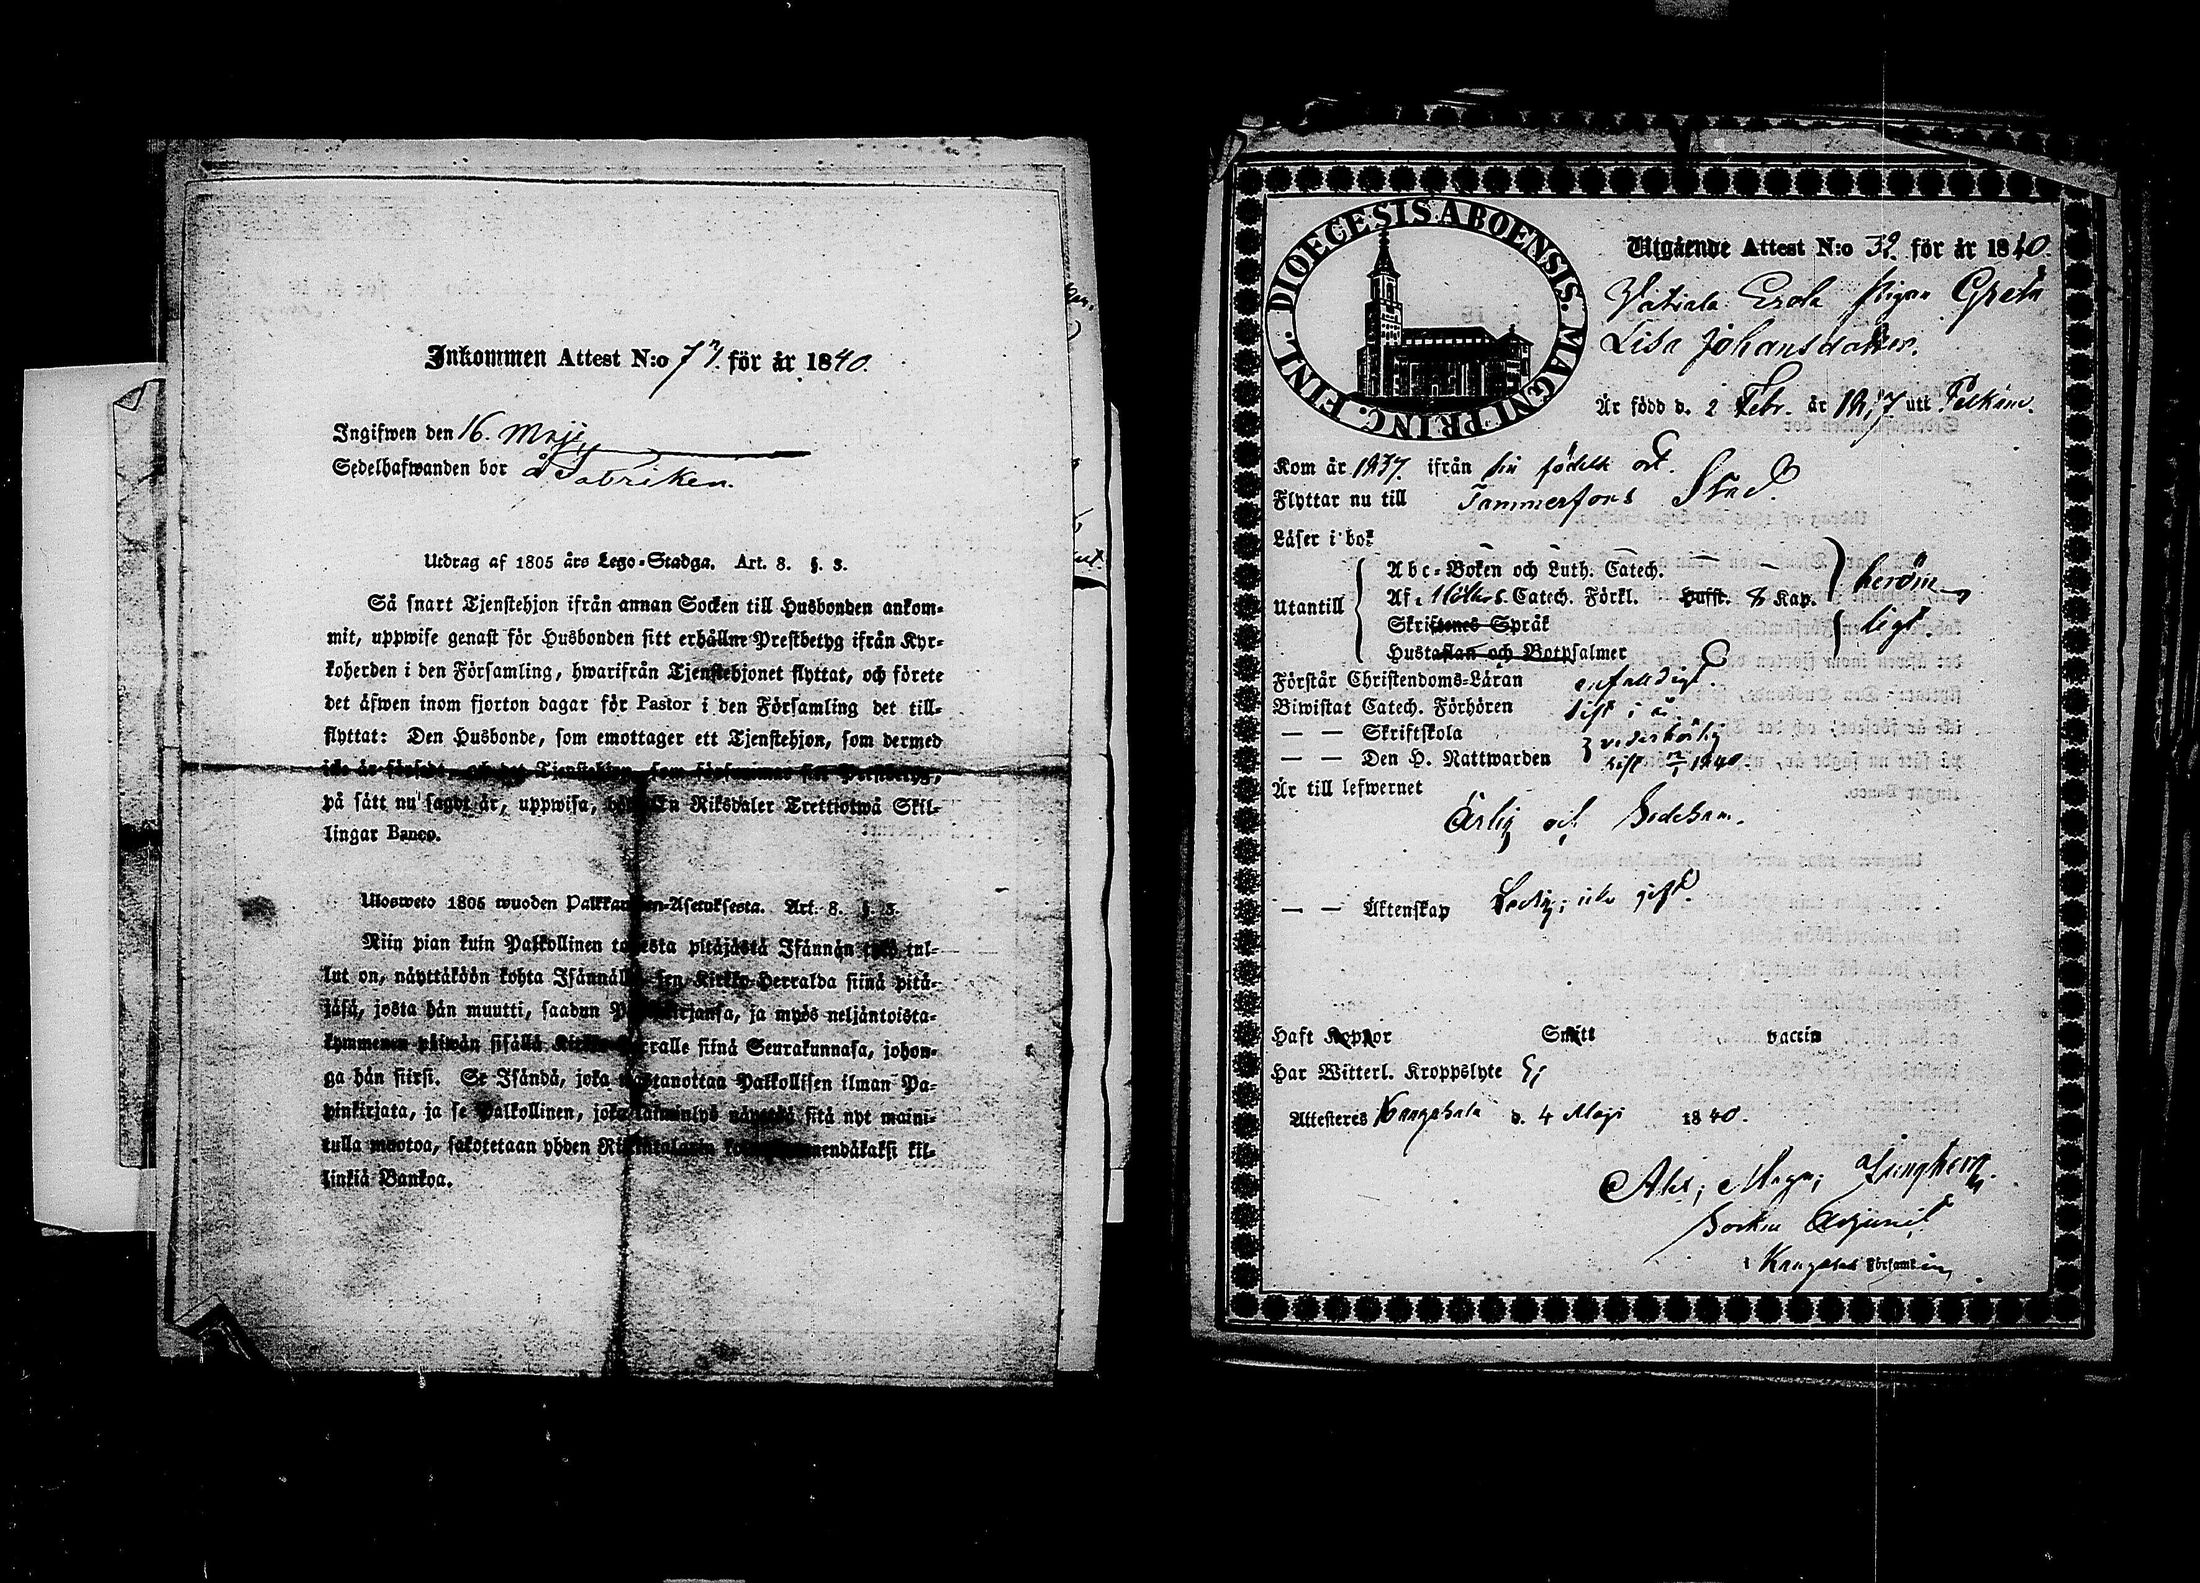 Inkommen Attest N:o 77. för år 1840.
Ingifwen den 16. Maji
Sedelhafwanden bor å Fabriken.
Utdrag af 1805 års Lego-Stadga. Art. 8. §. 3.
Så snart Tjenstehjon ifrån annan Socken till Husbonden ankom-
mit, uppwise genast för Husbonden sitt erhållne Prestbetyg ifrån Kyr-
koherden i den Församling, hwarifrån Tjenstehjonet flyttat, och förete
det äfwen inom fjorton dagar för Pastor i den Församling det till-
flyttat: Den Husbonde, som emottager ett Tjenstehjon, som dermed
icke är försedt, och det Tjenstehjon, som försummar sitt Prestbetyg,
på sätt nu sagdt är, uppwisa, En Riksdaler Trettiotwå Skil-
lingar Banco.
Ulosweto 1805 wuoden Palkkaus-Asetuksesta. Art. 8. §. 3.
Niin pian kuin Palkollinen toisesta pitäjästä Isännän tul-
lut on, näyttäköön kohta Isännällen sen Kirkko-Herralda siinä pitä-
jäsä, josta hän muutti, saadun Papinkirjansa, ja myös neljäntoista-
kymmenen päiwän sisällä Kirkko-Herralle siinä Seurakunnasa, johon-
ga hän siirsi. Se Isändä, joka wastanottaa Palkollisen ilman Pa-
pinkirjata, ja se Palkollinen, joka sitä nyt maini-
tulla muotoa, sakotetaan yhden Riksintalarin kil-
linkiä Bankoa.
DIOECESIS ABOENSIS. MAGNI PRINC. FINL.
Utgående Attest N:o 32. för år 1840.
Erola Pigan Greta
Lisa Johansdotter.
Är född d. 2 Febr. år 1817 uti Pelkäne.
Kom år 1837. ifrån sin födelse ort.
Flyttar nu till Tammerfors Stad.
Läser i bok
Abc-Boken och Luth. Catech.
Utantill Af Catech. Förkl. Hufst. 8 Kap. beröm-
Skriftenes Språk ligt.
Hustaflan och Botpsalmer
Förstår Christendoms-Läran enfaldigt.
Biwistat Catech. Förhören sist i år
— — Skriftskola wederbörlig
— — Den H. Nattwarden sist 1840
Är till lefwernet
Ärlig och Sedesam.
— — Äktenskap Ledig; icke gift.
Haft Koppor Smitt vaccin
Har Witterl. Kroppslyte Ej
Attesteres Kangasala d. 4 Maji 1840.
Ljungberg.
Sockne Adjunct
i Kangasala Församling